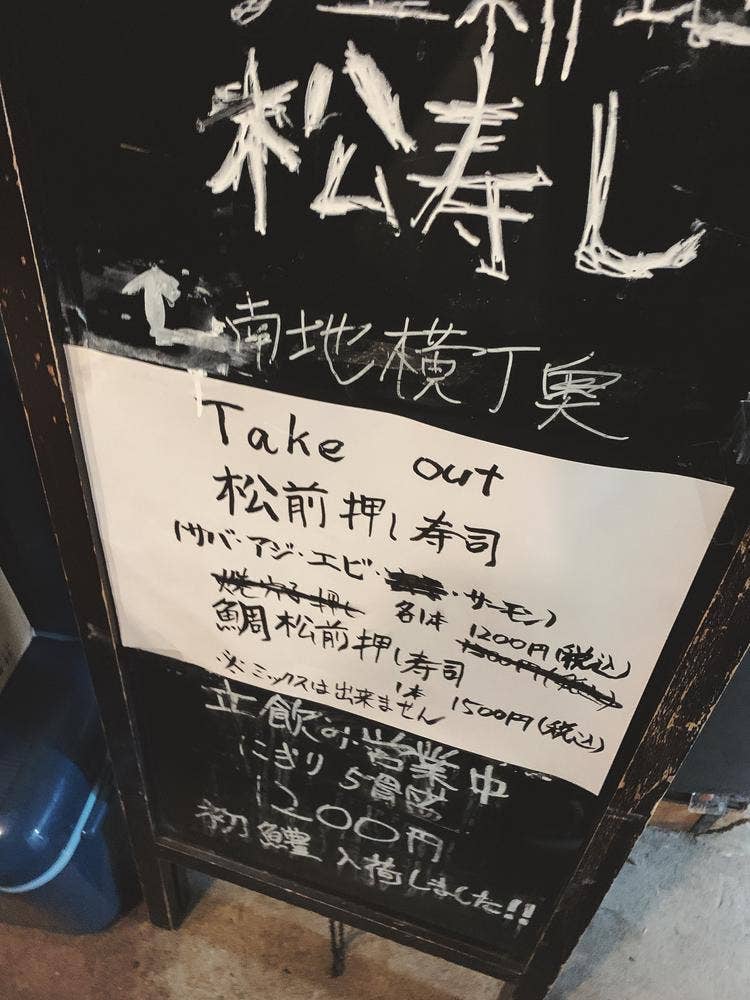 松寿し
南地横丁奥
Take out
松前押し寿司
(サバ・アジ・エビ・ ・サーモン)
焼穴子押し 各1本 1200円(税込)
1300円(税込)
鯛松前押し寿司
1本 1500円(税込)
※ミックスは出来ません
立飲み営業中
にぎり5貫盛
1200円
初鱧入荷しました!!